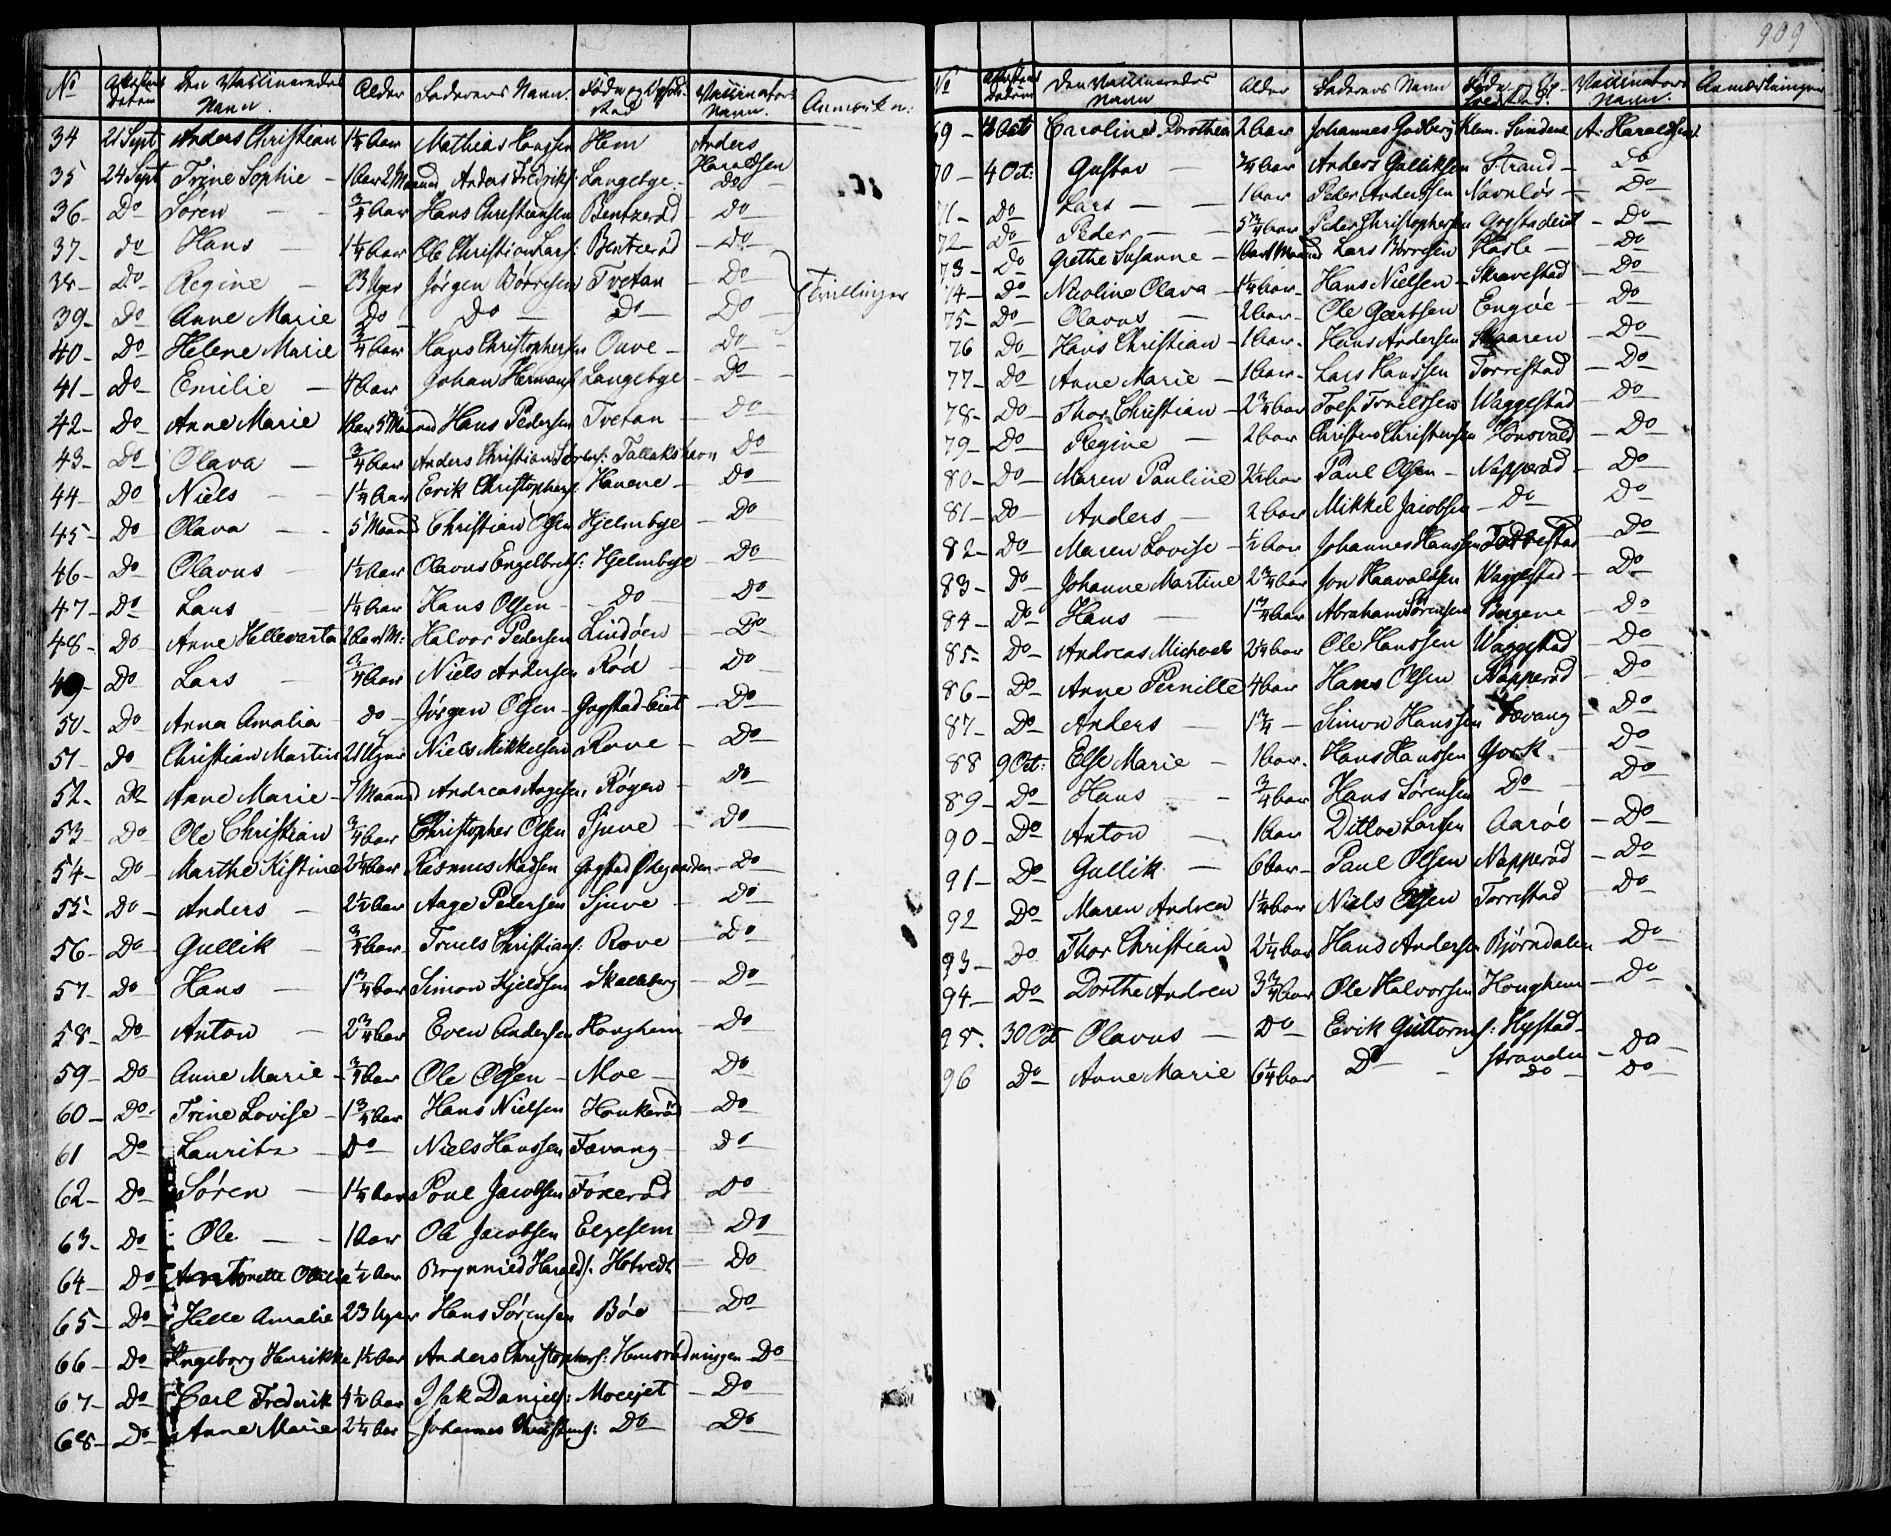 No Attestens Datum Den Vaccineredes Navn. Alder Faderens Navn. Føde og Opholdsted Vaccinators Navn. Anmærkn:
34 21 Sept Anders Christian 1¼ Aar Mathias Hanssen Hem Anders Haraldsen
35 24 Sept Trine Sophie - 1 Aar 2 Maaned Anders Fredriks: Langebye. - Do
36 - Do Søren - - ¾ Aar Hans Christiansen Bentzerød - Do
37 - do Hans - 1¼ Aar Ole Christian Lars: Bentzerød - Do
38 - Do - Regine - 23 Uger Jørgen Børresen Tvetan - Do
Tvillinger
39 - Do Anne Marie Do - Do - Do - Do
40 - Do - Helene Marie ¾ Aar Hans Christophersen Ouve - Do -
41 - Do - Emilie - 4 Aar Johan Hermans: Langebye - Do -
42 - Do - Anne Marie 1 Aar 5 Maaned Hans Pedersen Tvetan - Do
43 - Do Olava - ¾ Aar Anders Christian Sørens: Tallakshavn Do
44 - Do Niels - - 1¼ Aar Erik Christophers: Haneve - Do
45 - Do Olava - - 5 Maaned Christian Olsen Hjelmbye - Do
46 - Do Olavus 1½ Aar Olavus Engelbrets: Hjelmbye - Do
47 - Do Lars 1¼ Aar Hans Olsen - Do - Do
48 - Do Anne Hellevarta 2 Aar 1 M: Halvor Pedersen Lindøen - Do
49 - Do Lars - ¾ Aar Niels Andersen Rød - Do
50 - Do Anna Amalia do - Jørgen Olsen - Gogstad Eiet - Do
51 - do Christian Martin 21 Uger Niels Mikkelsen Rove - Do
52 - Do Anne Marie - 7 Maaned Andreas Aagesen Røgen - Do
53 - Do Ole Christian ¾ Aar Christopher Olsen Sjuve - Do
54 - Do - Marthe Kistine 2¼ Aar Rasmus Madsen Gogstad Østgaarden - Do
55 - Do - Anders - 2½ Aar Aage Pedersen Sjuve - Do
56 - Do Gullik - ¾ Aar Truels Christians: Rove - Do
57 - Do Hans - 1¾ Aar Simon Kjeldsen Skalleberg - Do
58 - Do Anton - 2¾ Aar Even Andersen Haughem Do
59 - Do Anne Marie - ¾ Aar Ole Olsen - Moe - Do
60 - Do - Trine Lovise - 1¾ Aar Hans Nielsen Haukerød - Do
61 Do - Lauritz - Do - Niels Hanssen Fævang - Do
62 - Do Søren - 1¼ Aar Poul Jacobsen Foxerød Do
63 - Do Ole - - 1 Aar Ole Jacobsen Elgesem - Do
64 - Do Antonette Otilie ½ Aar Brynnild Haralds: Hotvedt - Do
65 - Do - Helle Amalie 23 Uger Hans Sørensen Bøe - Do
66 - Do Ingeborg Henrikke 1½ Aar Anders Christophers: Hemsrødningen - Do
67 - Do Carl Fredrik 4½ Aar Isak Daniels: Moeejet - Do
68 - Do Anne Marie 2¼ Aar Johannes Christens: Do - Do
909
No Attestens Datum Den Vaccineredes Navn Alder Faderens Navn Føde og Opholdsted: Vaccinators Navn: Anmærkninger
69 - 4 Oct Caroline Dorothea 2 Aar Johannes Godberg Klem. Sundene A. Haraldsen
70 - 4 Oct: Gustav - ¾ Aar Anders Gulliksen Strand - Do
71 - Do Lars - - 1 Aar Peder Anderssen Navnløs - Do
72 - Do Peder - - 5¾ Aar Peder Christophersen Gogstadeiet - Do
73 - Do Grethe Susanne - 1 Aar 1 Maaned Lars Børresen Hasle - Do
74 - Do Nicoline Olava - 1¼ Aar - Hans Nielsen - Skravestad - Do
75 - Do - Olavus - 2 Aar - Ole Geertsen Engøe - Do
76 Do - Hans Christian - 1 Aar - Hans Andersen Skaaren - Do
77 - Do Anne Marie - 1 Aar - Lars Hanssen Torrestad - Do
78 - Do - Thor Christian - 2¾ Aar Tolf Truelssen Waggestad - Do
79 - Do Regine - 2 Aar Christen Christensen Honsvald - Do
80 - Do - Maren Pauline 2½ Aar Paul Olsen - Napperød - Do
81 - Do - Anders - 2 Aar Mikkel Jacobsen - Do Do
82 - Do - Maren Lovise - ½ Aar Johannes Hanssen - Do
83 - Do Johanne Martine 2¾ Aar Jon Haavaldsen Waggestad - Do
84 - Do - Hans - 1¾ Aar Abraham Sørensen Bergene - Do
85 - Do - Andreas Michael 2¼ Aar Ole Hanssen Waggestad - Do
86 - Do - Anne Pernille 4 Aar Hans Olsen Napperød - Do
87 - Do - Anders - 1¾ - Simon Hanssen Fævang - Do
88 9 Oct: Else Marie - 1 Aar. Hans Hanssen York - Do
89 - Do - Hans - - ¾ Aar Hans Sørensen Do - Do
90 - Do Anton - 1 Aar Ditlev Larsen Aarøe - Do
91 - Do Gullik - 6 Aar - Paul Olsen Napperød - Do
92 Do - Maren Andrea 1¼ Aar Niels Olsen Torrestad - Do
93 - Do Thor Christian 2¼ Aar Hans Andersen Bjørndalen - Do
94 - Do Dorthe Andrea 3¾ Aar Ole Halvorsen Haughem - Do
95. 30 Oct Olavus - Do Erik Guttorms: Hystad-stranden - Do -
96 Do - Anne Marie 6¼ Aar Do - Do - Do -